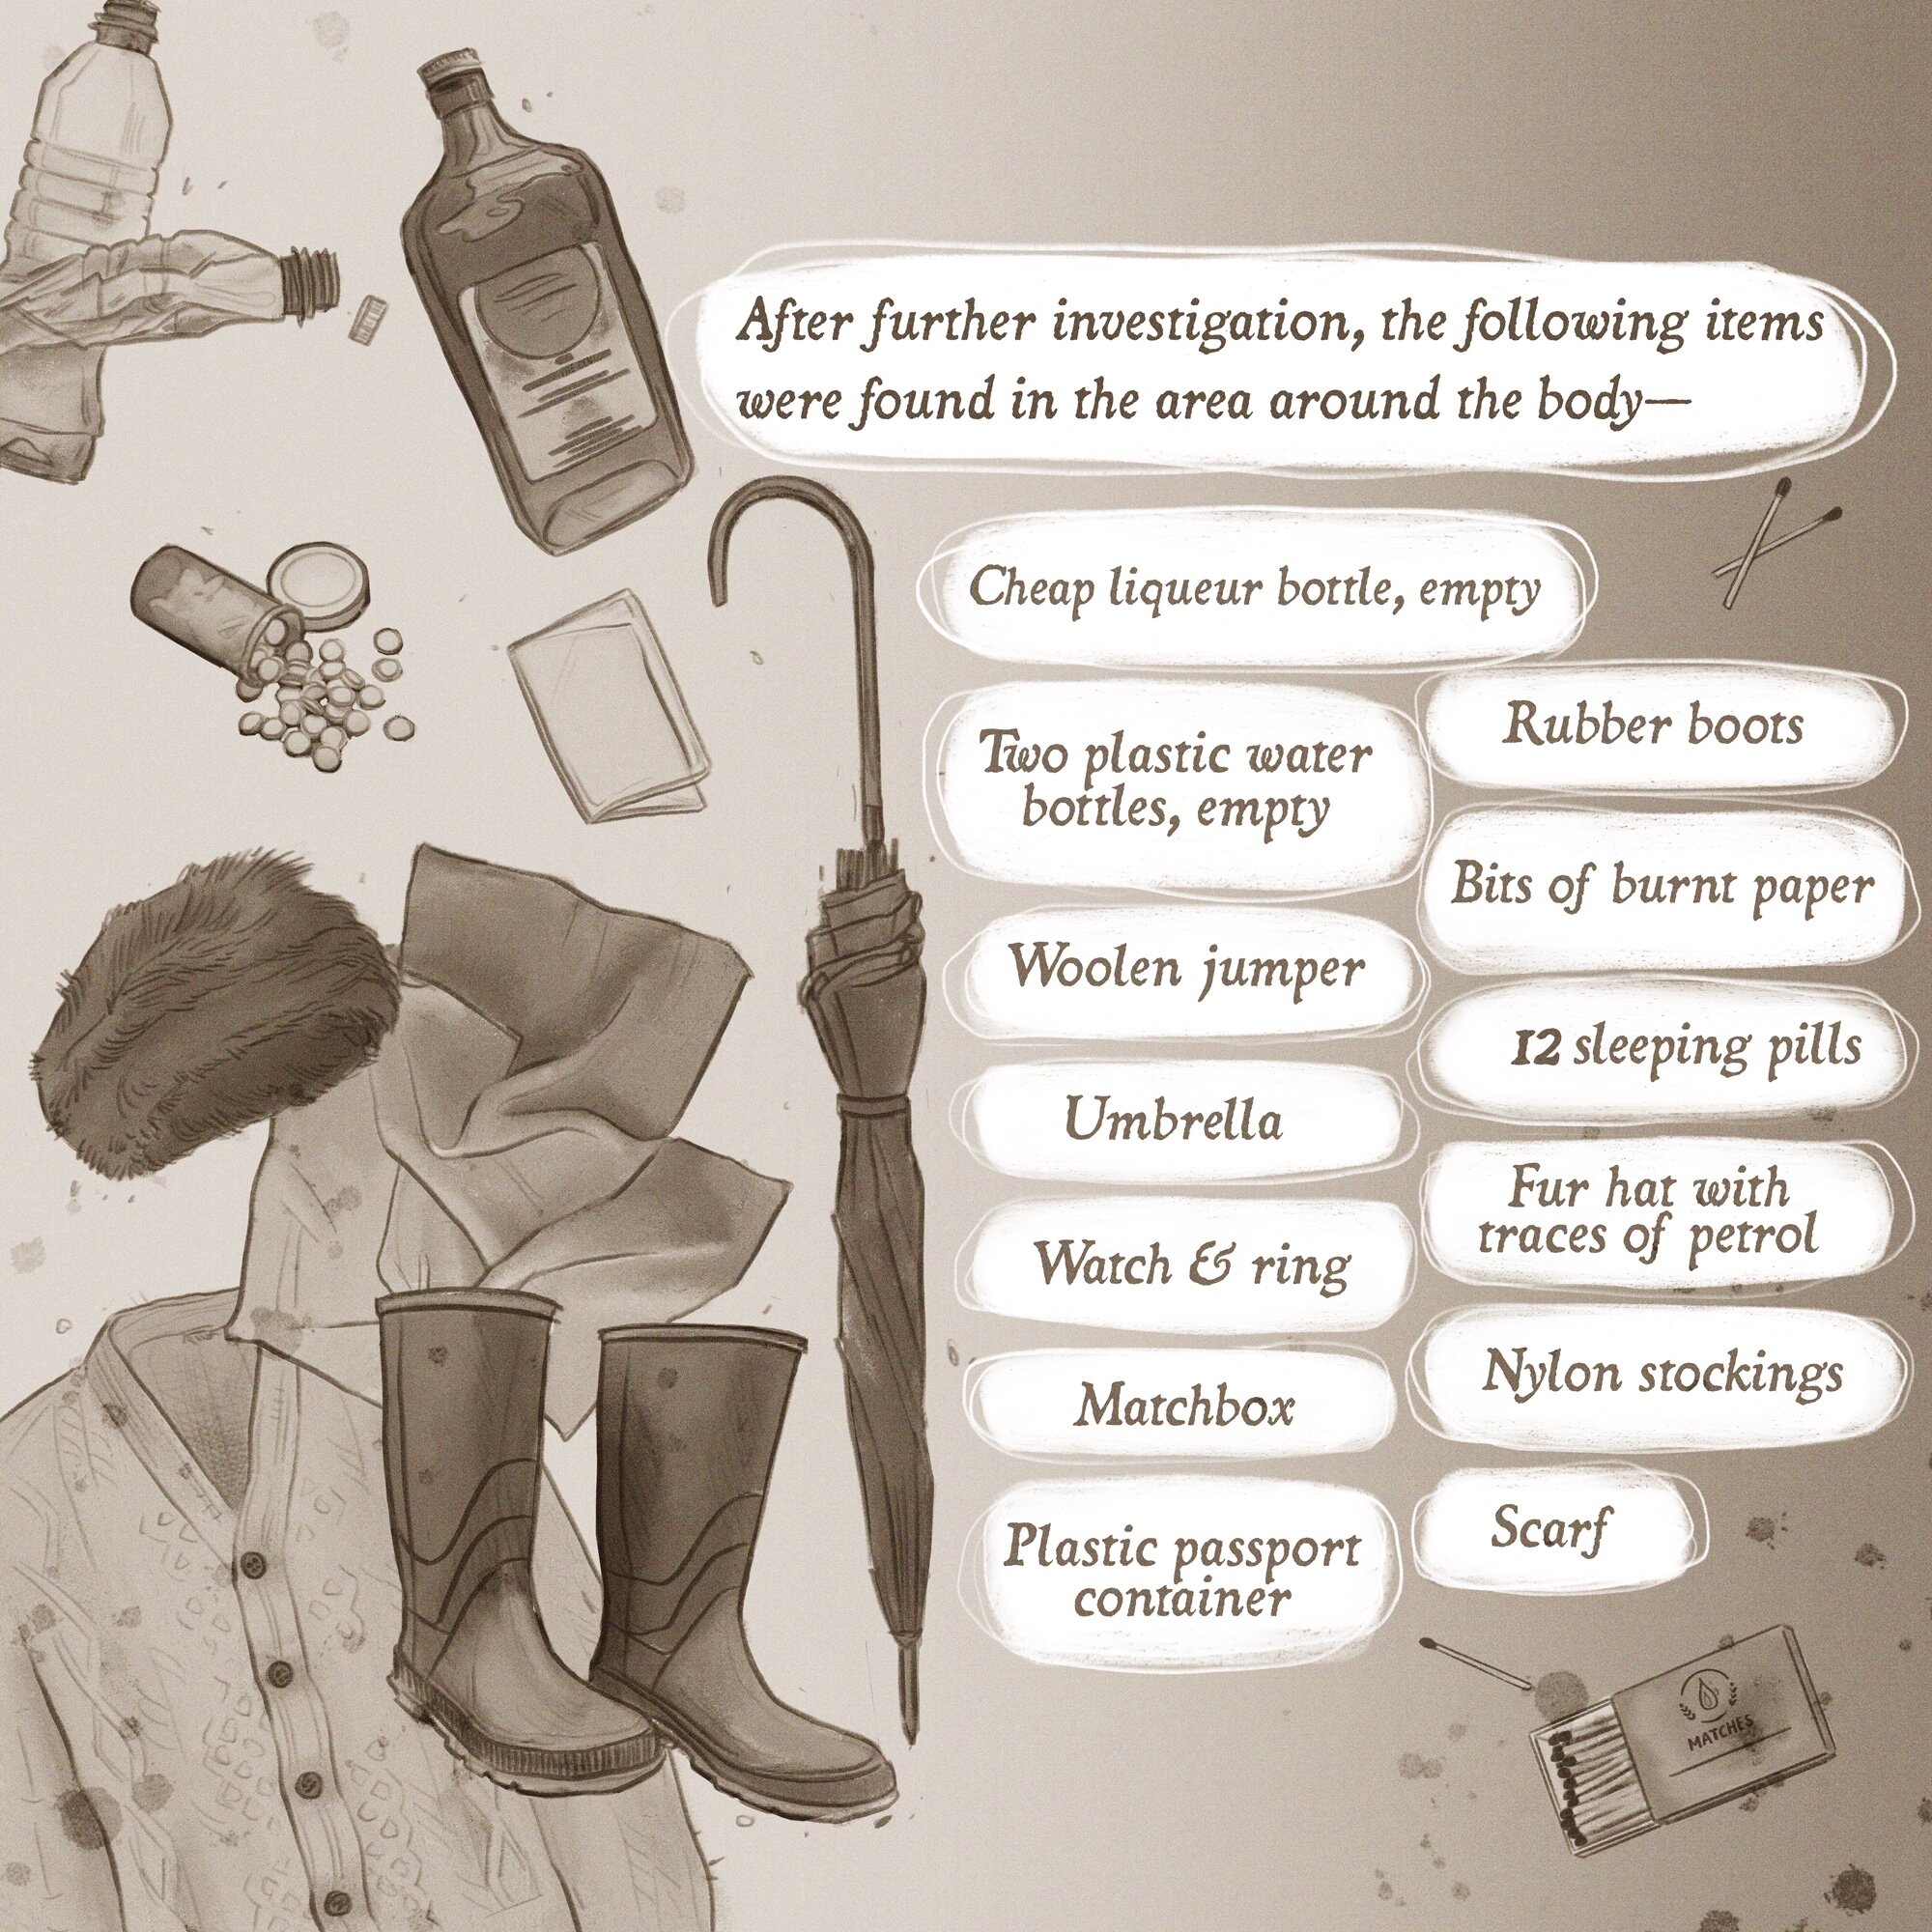 After further investigation, the following items
were found in the area around the body—
Cheap liqueur bottle, empty
Two plastic water
bottles, empty
Woolen jumper
Umbrella
Watch & ring
Matchbox
Plastic passport
container
Rubber boots
Bits of burnt paper
12 sleeping pills
Fur hat with
traces of petrol
Nylon stockings
Scarf
MATCHES